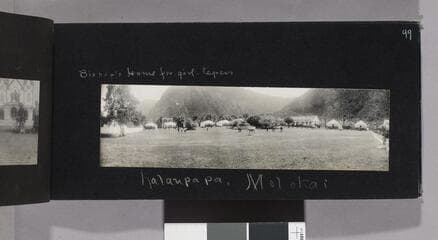 99
Bishop's Home for girl lepers
Kalaupapa, Molokai